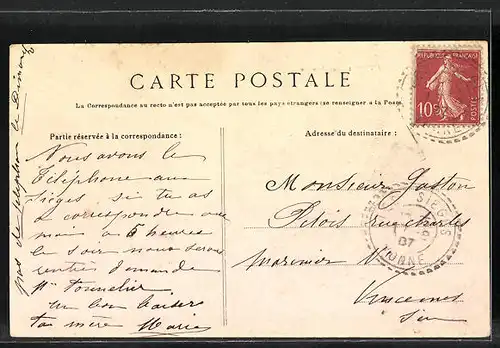 RÉPUBLIQUE FRANÇAISE
10c
POSTES
CARTE POSTALE
La Correspondance au recto n'est pas acceptée par tous les pays étrangers (se renseigner à la Poste
Partie réservée à la correspondance :
Adresse du destinataire :
Nous avons le
téléphone aux
Sièges si tu as
a correspondre
à 6 heures
le soir nous serons
rentrés demande
Mr Tonnelier
un bon baiser
ta mère Marie
pas de téléphone le Dimanche
Monsieur Gaston
Pilois rue Charles
marinier
Vincennes
SIÈGES
07
YONNE